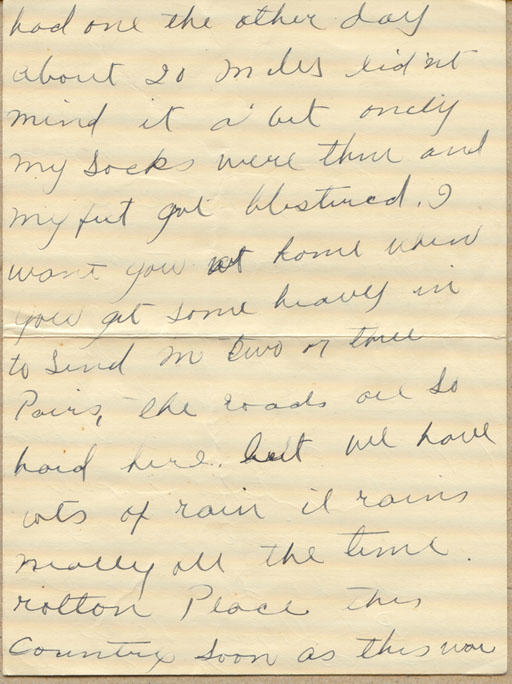 had one the other day
about 20 miles did'nt
mind it a bit onely
my socks were thin and
my feet got blistured. I
want you at home when
you get some heavey in
to send m two or three
Pairs, the roads are so
hard here. but we have
lots of rain it rains
neally all the time.
rotton Place this
Country soon as this war